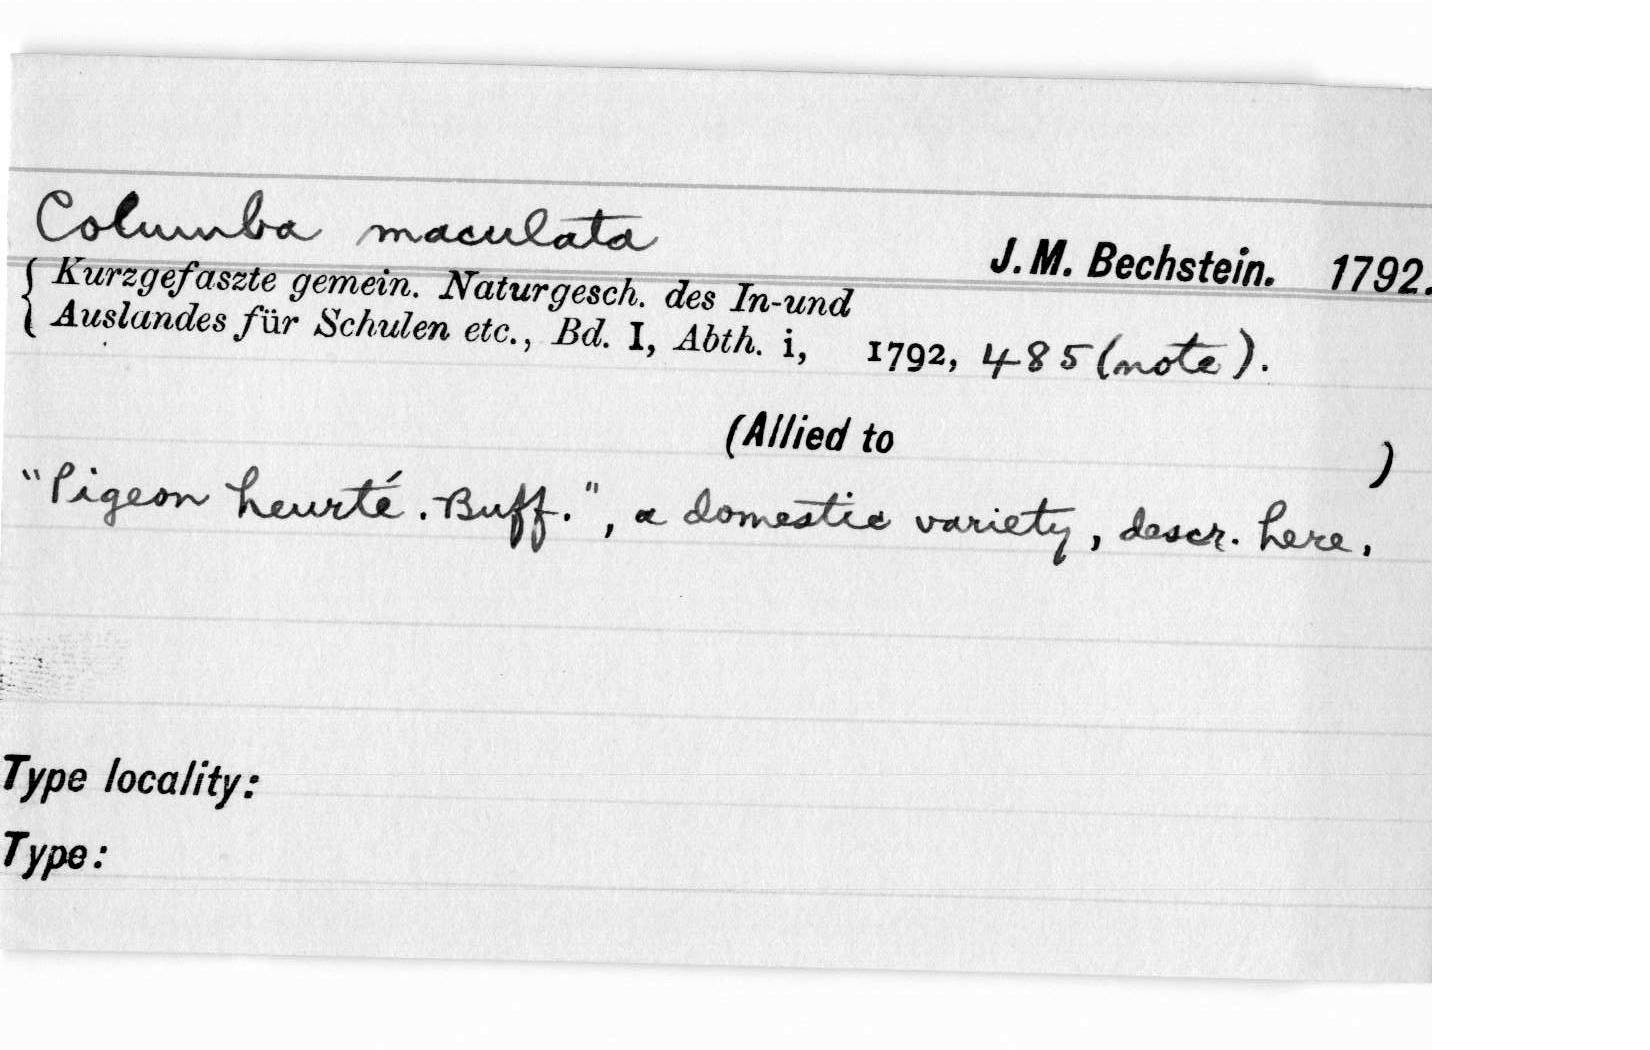 Columba maculata
J. M. Bechstein. 1792.
Kurzgefaszte gemein. Naturgesch. des In-und
Auslandes für Schulen etc., Bd. I, Abth. i, 1792, 485 (note).
(Allied to )
"Pigeon heurté. Buff.", a domestic variety, descr. here.
Type locality:
Type: